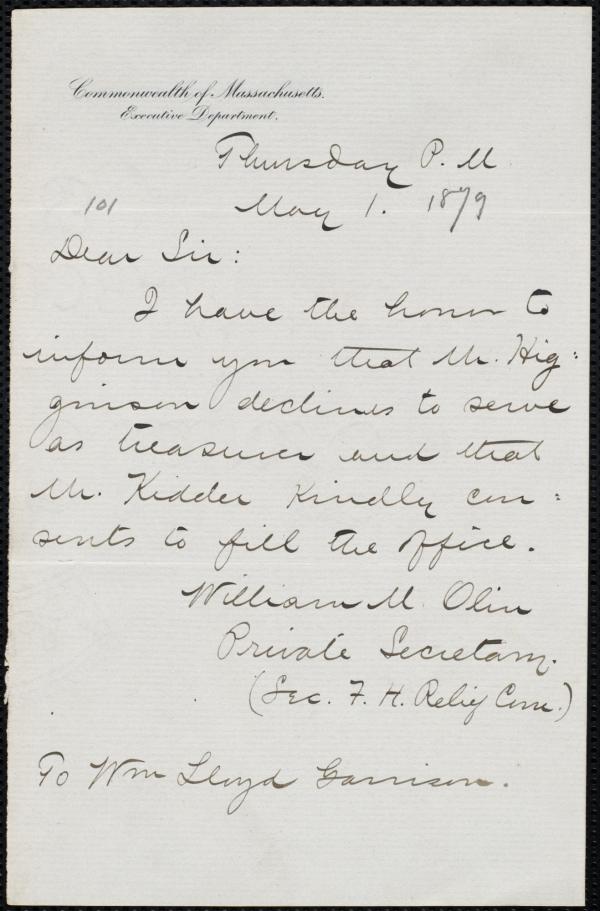 Commonwealth of Massachusetts.
Executive Department.
Thursday P. M.
101
May 1. 1879
Dear Sir:
I have the honor to
inform you that Mr. Hig:
ginson declines to serve
as treasurer and that
Mr. Kidder kindly con:
sents to fill the office.
William M. Olin
Private Secretary.
(Sec. F. H. Relief Com.)
To Wm Lloyd Garrison.